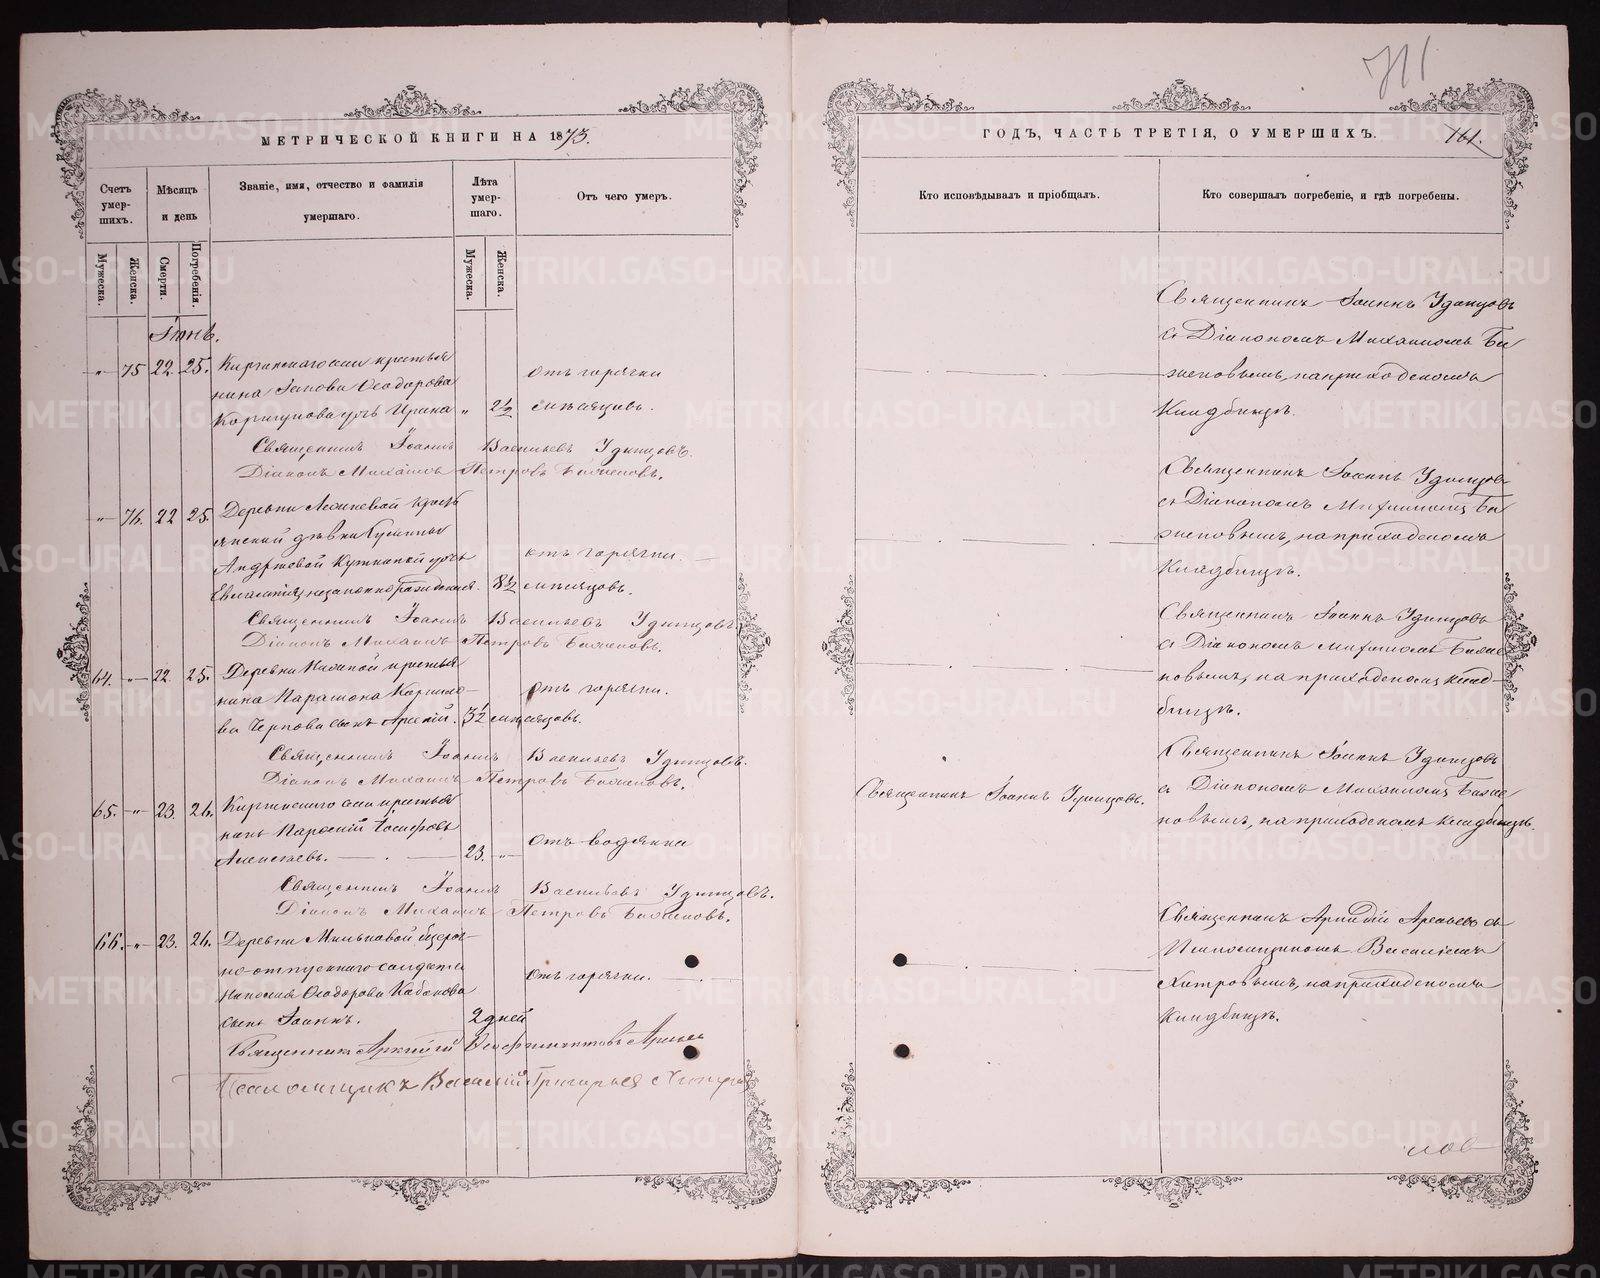 711
МЕТРИЧЕСКОЙ КНИГИ НА 1873.
Счетъ умер-шихъ.
Мѣсяцъ и день
Званіе, имя, отчество и фамилія умершаго.
Лѣта умер-шаго.
Отъ чего умеръ.
Мужеска.
Женска.
Смерти.
Погребенія.
Мужеска.
Женска.
Іюнь.
" 75 22. 25. Киргинскаго села крестья
нина Іакова Ѳеодорова отъ горячки
Коршунова дочь Ирина " 2½ мѣсяцовъ.
Священникъ Іоаннъ Васильевъ Удинцовъ.
Діаконъ Михаилъ Петровъ Баженовъ.
" 76. 22 25. Деревни крестъ
янской дѣвки
Андреевой дочь отъ горячки
незаконнорожденная. 8½ мѣсяцовъ.
Священникъ Іоаннъ Васильевъ Удинцовъ
Діаконъ Михаилъ Петровъ Баженовъ.
64. " 22. 25. Деревни крестья
нина Парамона отъ горячки.
ва Чернова сынъ Арсеній. 3½ мѣсяцовъ.
Священникъ Іоаннъ Васильевъ Удинцовъ.
Діаконъ Михаилъ Петровъ Баженовъ.
65. " 23. 26. Киргинскаго села крестья
нинъ Іосифовъ отъ водянки
Алексѣевъ. 23. "
Священникъ Іоаннъ Васильевъ Удинцовъ.
Діаконъ Михаилъ Петровъ Баженовъ.
66. " 23. 26. Деревни Мильковой безсроч-
но-отпускнаго солдата отъ горячки.
Ѳеодорова Кабакова
сынъ Іоаннъ. 2 дней
Священникъ Аркадій
Псаломщикъ Василій Григорьев
ГОДЪ, ЧАСТЬ ТРЕТІЯ, О УМЕРШИХЪ.
161.
Кто исповѣдывалъ и пріобщалъ.
Кто совершалъ погребеніе, и гдѣ погребены.
Священникъ Іоаннъ Удинцовъ
съ Діакономъ Михаиломъ Ба
женовымъ, на приходскомъ
кладбищѣ.
Священникъ Іоаннъ Удинцовъ
съ Діакономъ Михаиломъ Ба
женовымъ, на приходскомъ
кладбищѣ.
Священникъ Іоаннъ Удинцовъ
съ Діакономъ Михаиломъ Баже
новымъ, на приходскомъ клад-
бищѣ.
Священникъ Іоаннъ Удинцовъ
Священникъ Іоаннъ Удинцовъ.
съ Діакономъ Михаиломъ Баже
новымъ, на приходскомъ кладбищѣ.
Священникъ Аркадій Арсеньевъ съ
Псаломщикомъ Василіемъ
Хитровымъ, на приходскомъ
кладбищѣ.
METRIKI.GASO-URAL.RU